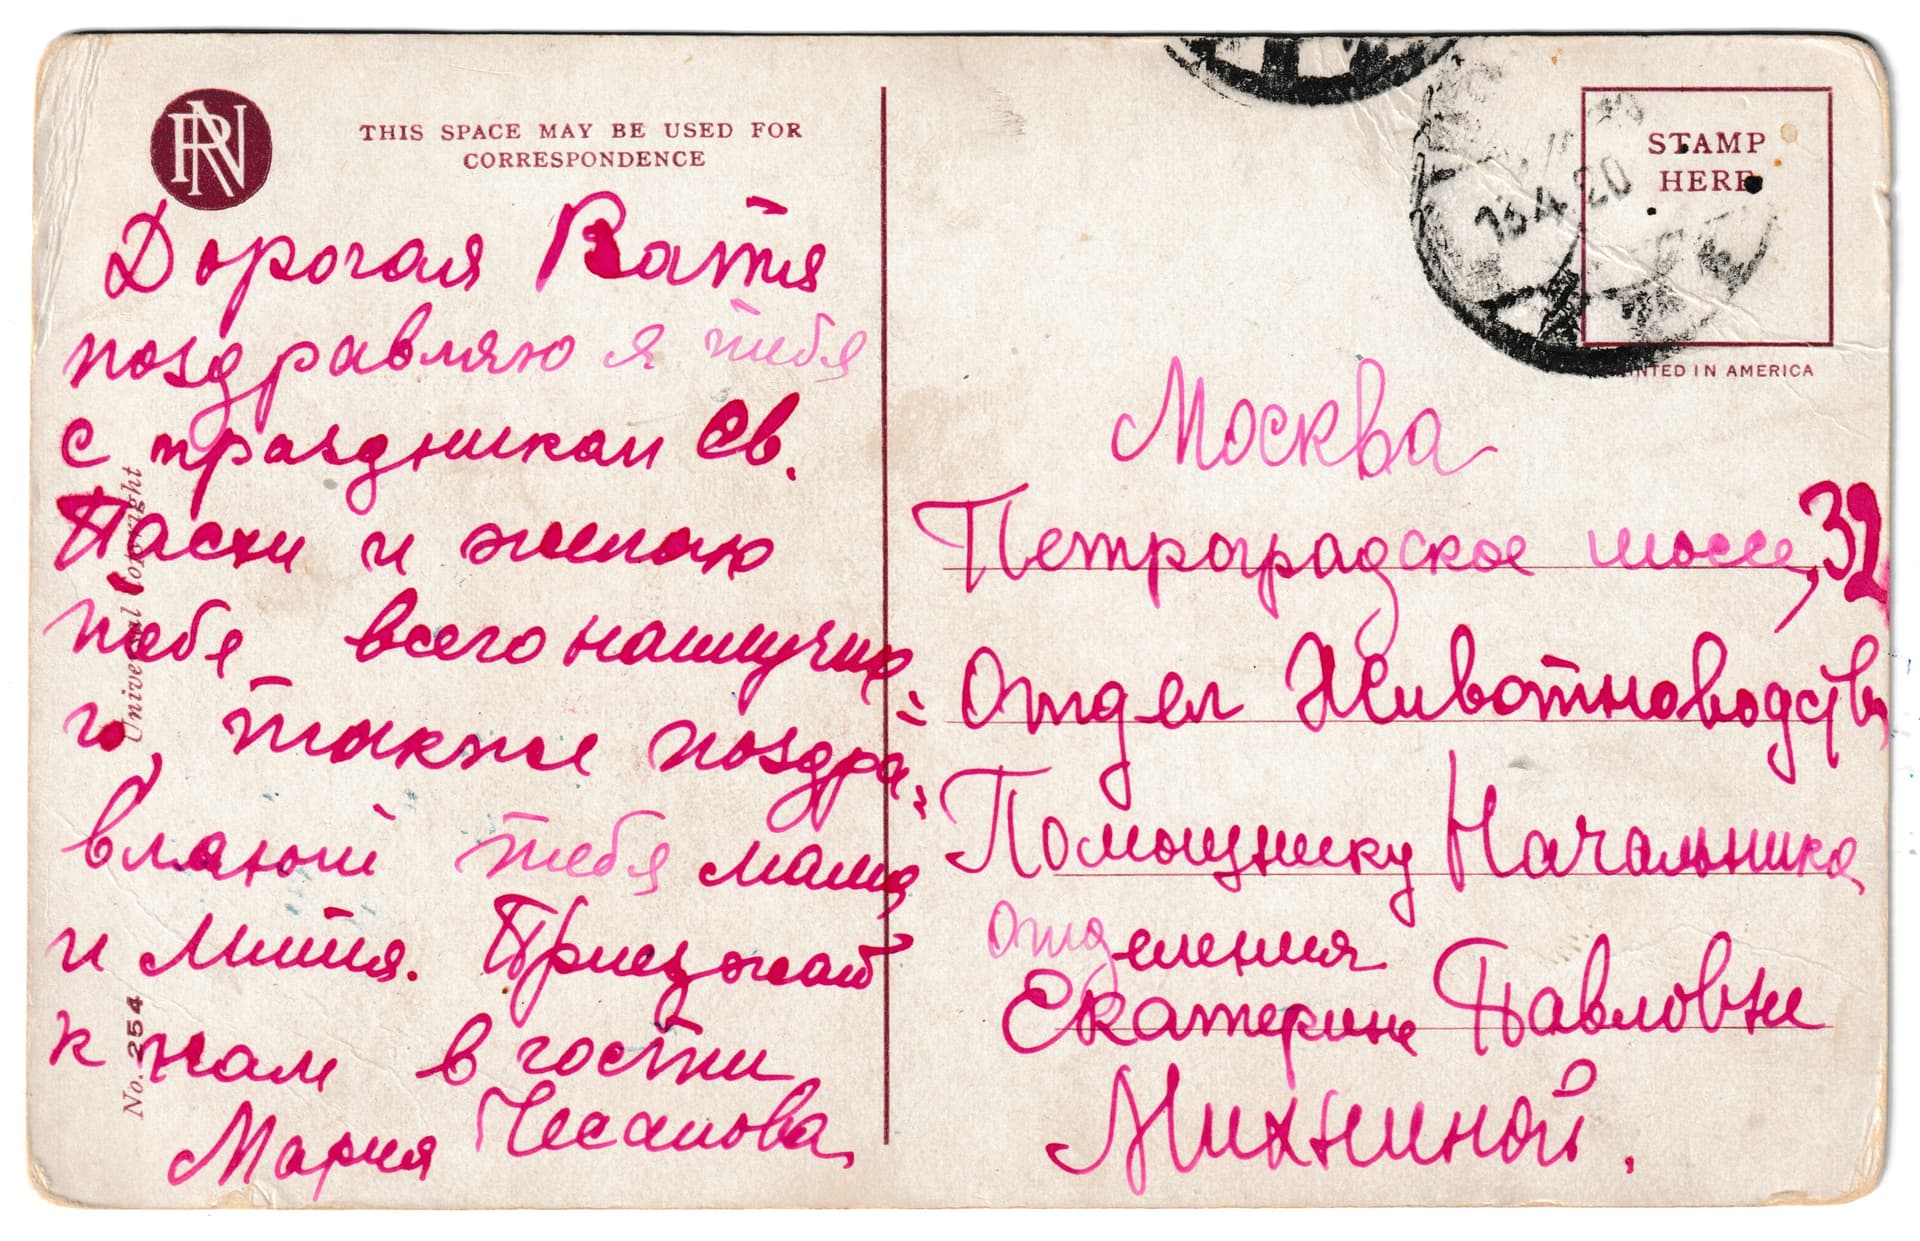 THIS SPACE MAY BE USED FOR
CORRESPONDENCE
Дорогая Катя
поздравляю я тебя
с праздникам Св.
Пасхи и желаю
тебе всего наилучше
го, также поздра=
вляют тебя мама
и Митя. Приезжай
к нам в гости
Мария Чесалова
Universal Copyright
No. 254
STAMP
HERE
13 4 20
PRINTED IN AMERICA
Москва
Петроградское шоссе, 32
Отдел Животноводств
Помощнику Начальника
отделения
Екатерине Павловне
Михниной.